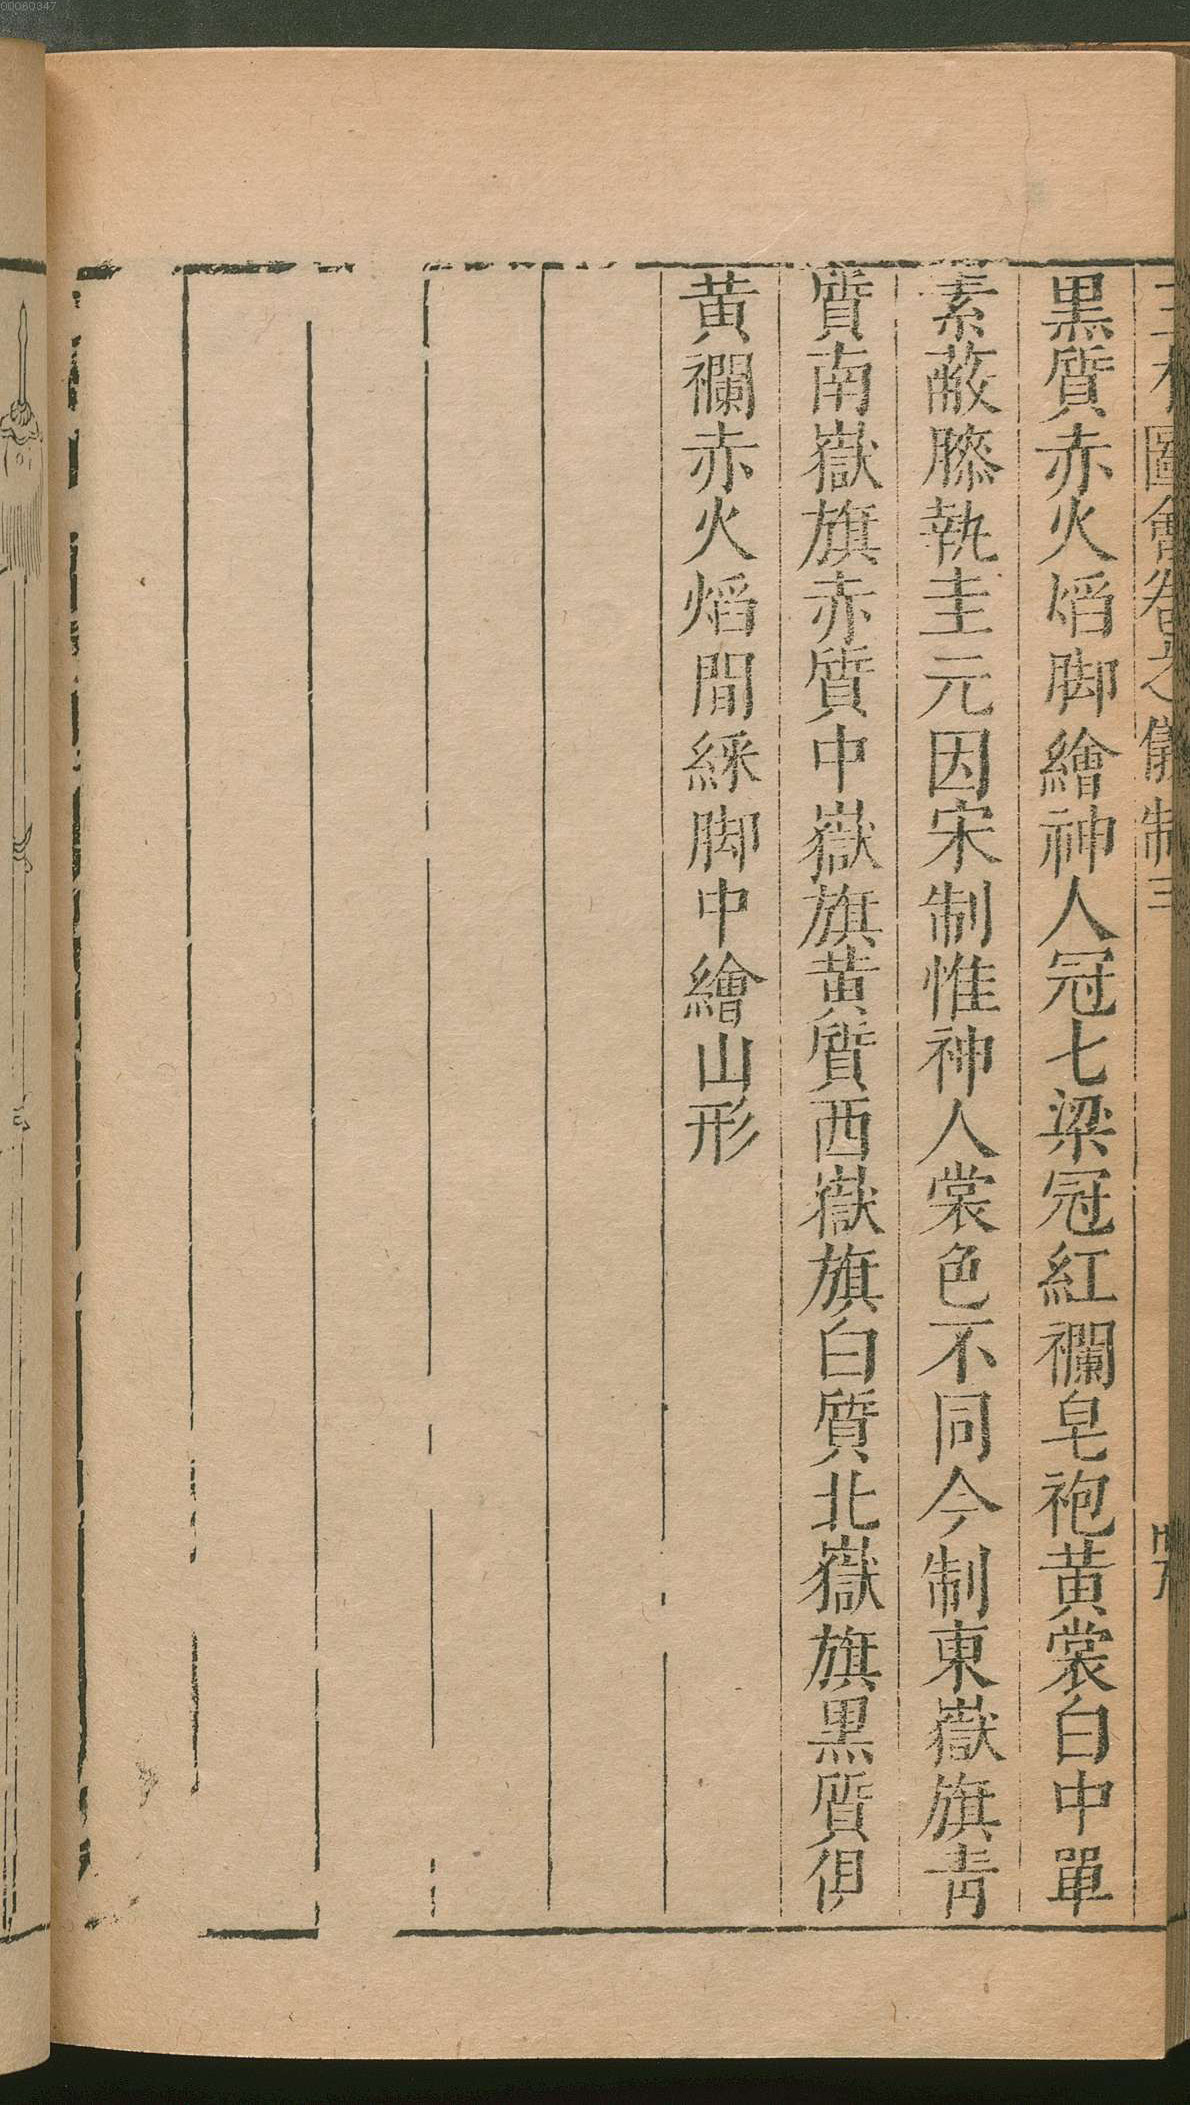 00060347
圖會卷之儀制三
黒質赤火焰脚繪神人冠七梁冠紅襴皂袍黄裳白中單
素蔽膝執圭元因宋制惟神人裳色不同今制東嶽旗青
質南嶽旗赤質中嶽旗黄質西嶽旗白質北嶽旗黒質俱
黄襴赤火焰間綵脚中繪山形